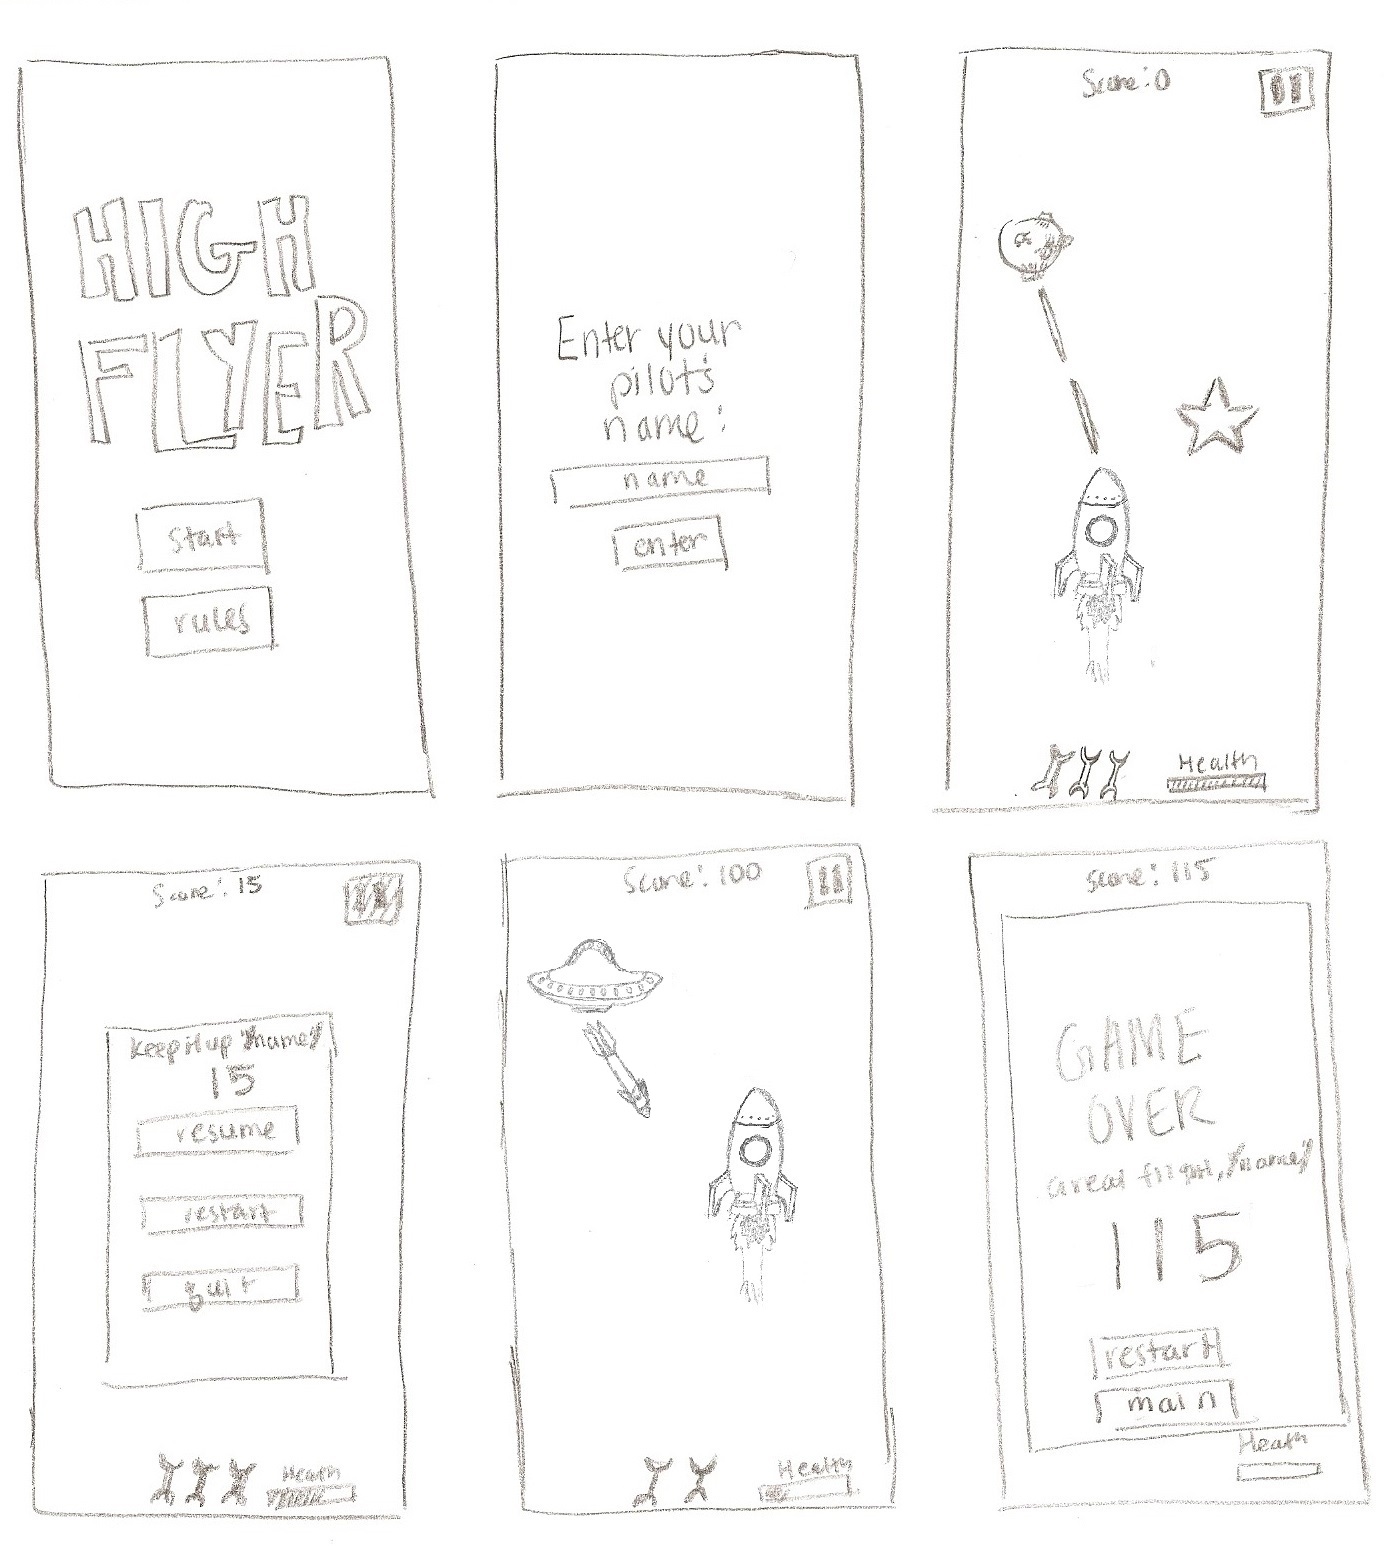 HIGH
FLYER
start
rules
Enter your
pilot's
name:
name
enter
Score: 0
Health
Score: 15
keep it up "name"
15
resume
restart
quit
Health
Score: 100
Health
score: 115
GAME
OVER
Great flight, "name"
115
restart
main
Health